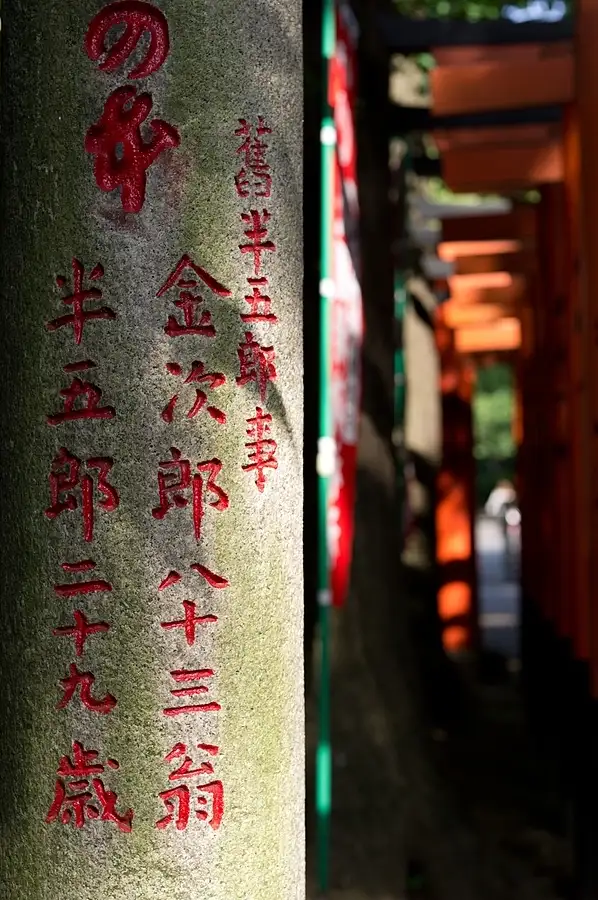 の
舊半五郎事
金次郎八十三翁
半五郎二十九歳